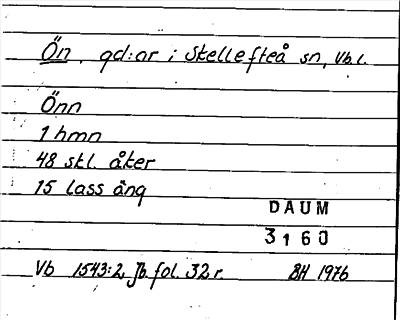 Ön, gd:ar i Skellefteå sn, Vb.l.
Önn
1 hmn
48 skl. åker
15 lass äng
DAUM
3160
Vb 1543:2, Jb. fol. 32 r. BH 1976